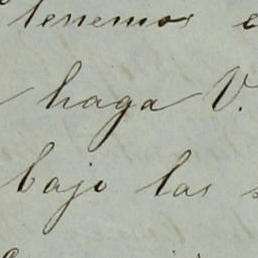 tenemos
haga V.
bajo las